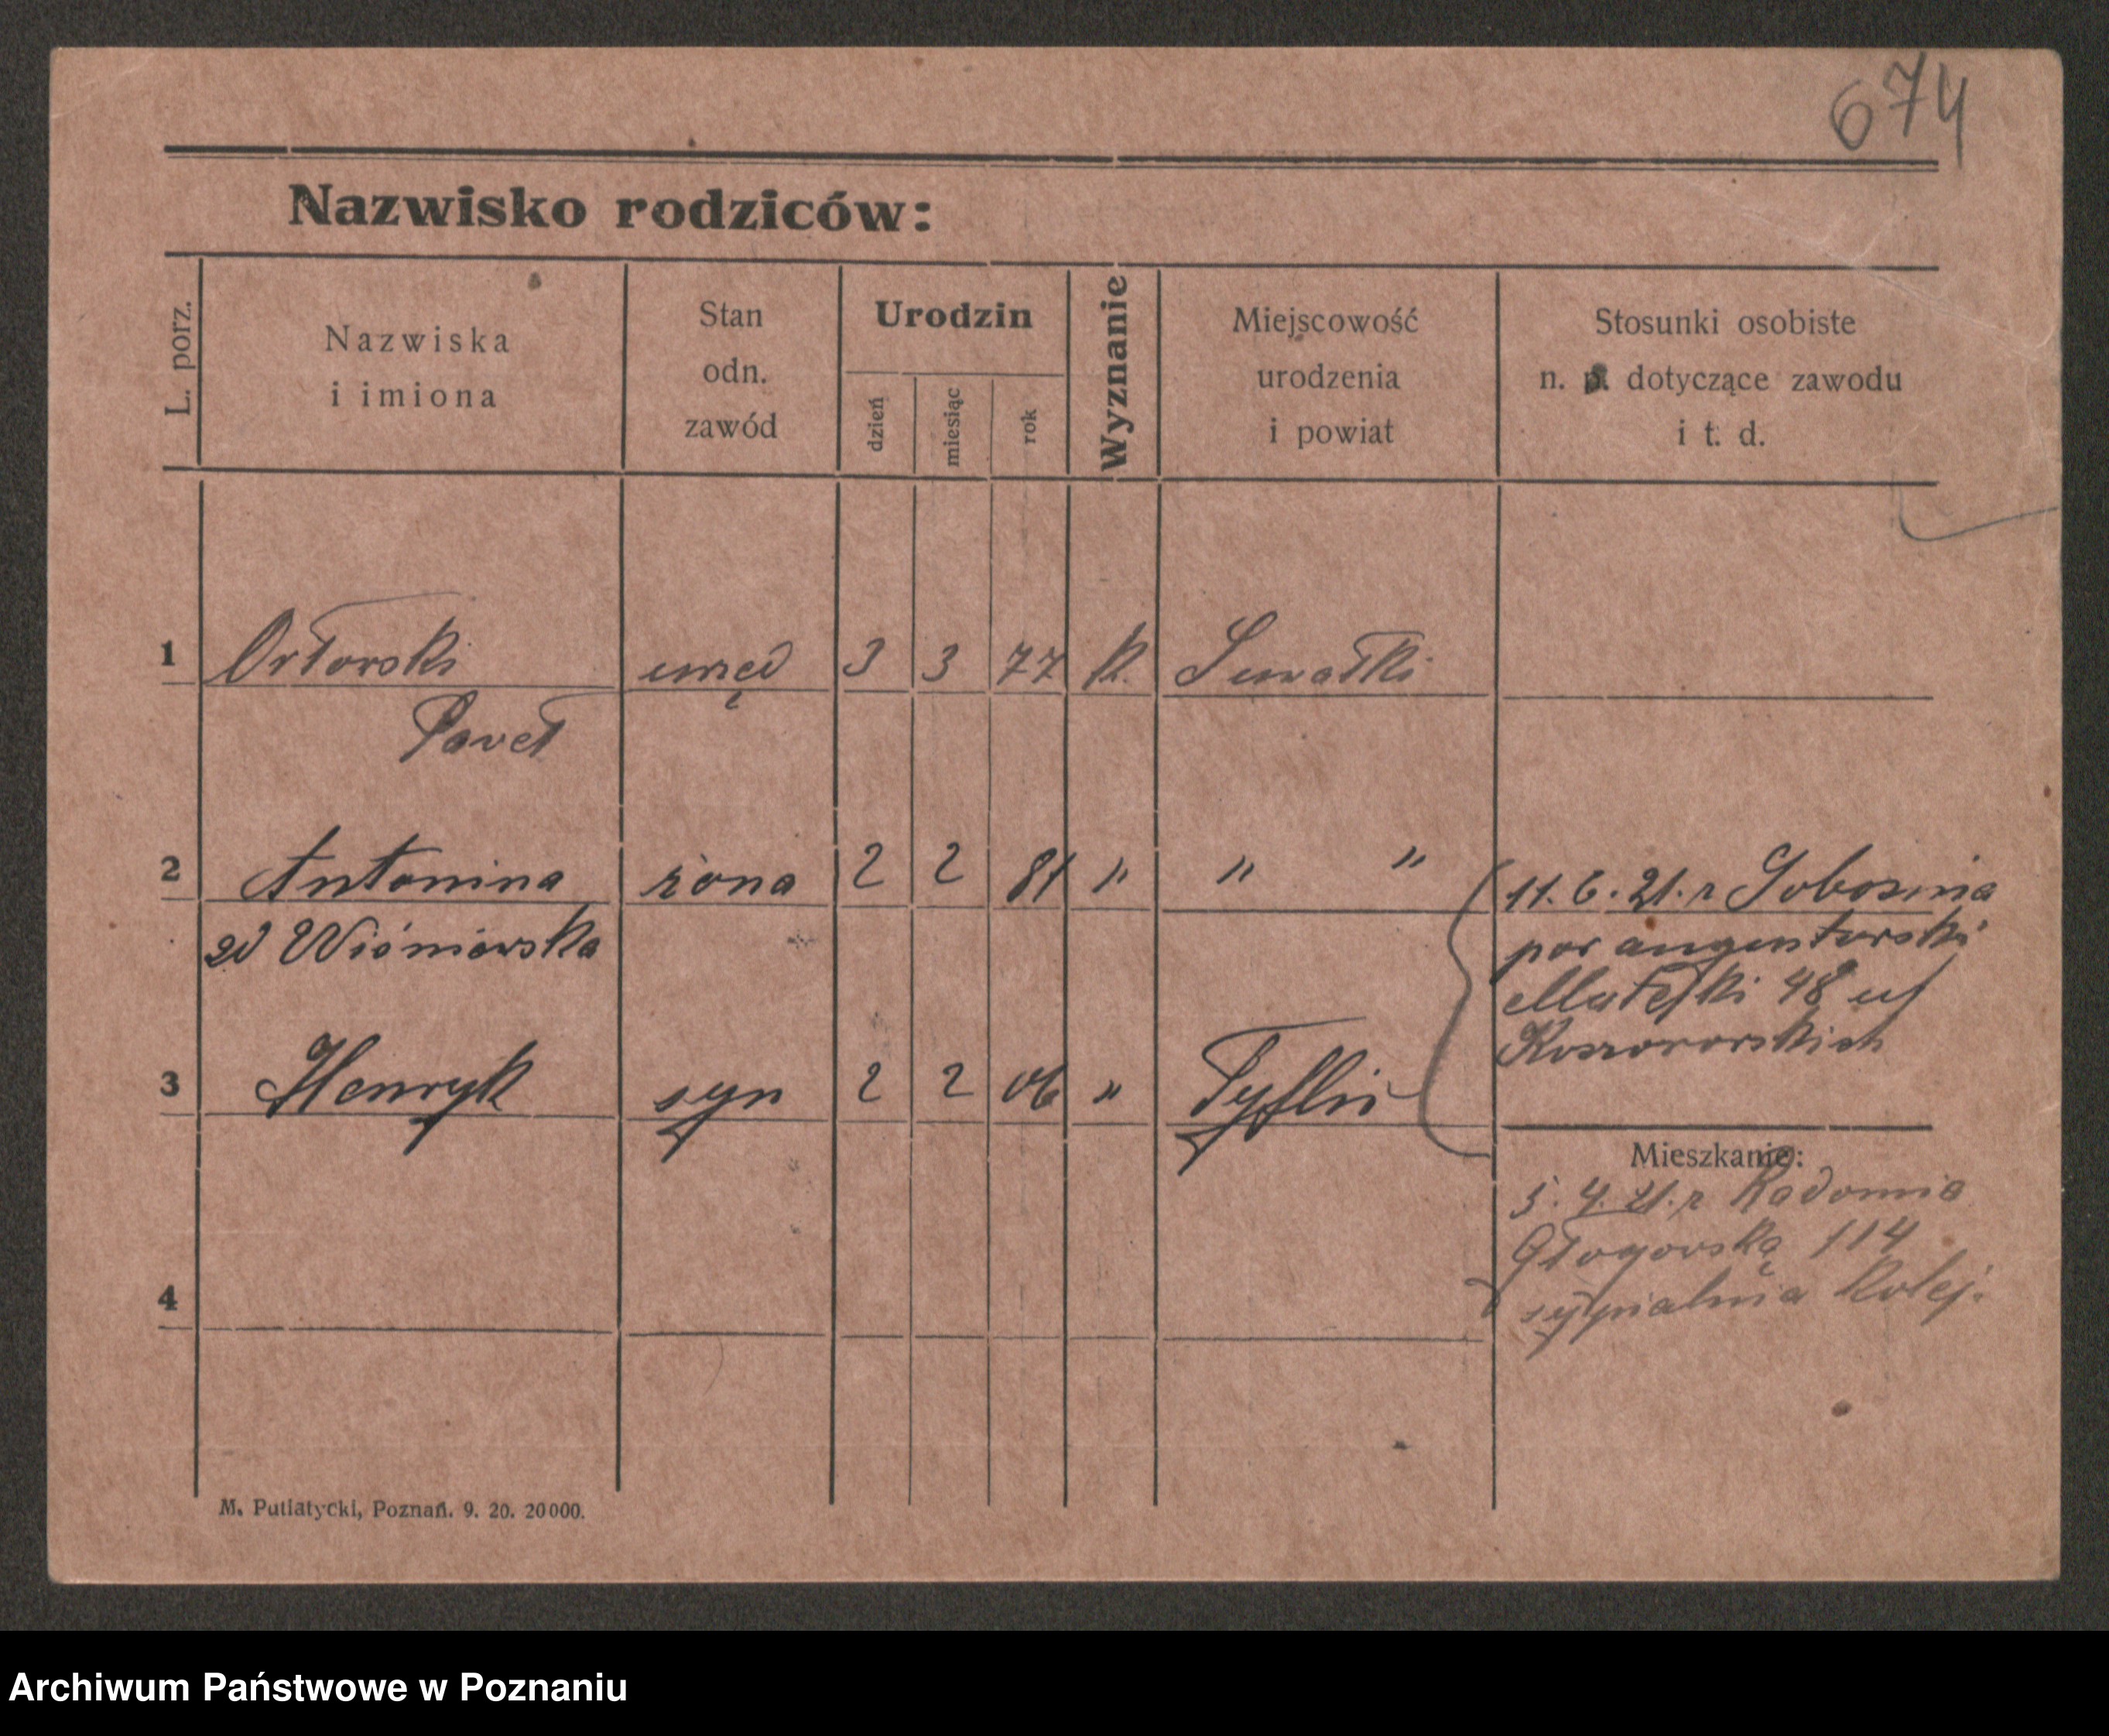 674
Nazwisko rodziców:
L. porz.
Nazwiska
i imiona
Stan
odn.
zawód
Urodzin
dzień
miesiąc
rok
Wyznanie
Miejscowość
urodzenia
i powiat
Stosunki osobiste
n. p. dotyczące zawodu
i t. d.
1 Orłowski urzęd 3 3 77 k. Suwałki
Paweł
2 Antonina żona 2 2 81 " " "
zd Wiśniewska
11. 6. 21. r
pow augustowski
Matejki 48 u
3 Henryk syn 2 2 06 " Tyflis
Mieszkanie:
5. 4. 21. r Radomia
Głogowska 114
sypialnia kolej.
4
M. Putiatycki, Poznań. 9. 20. 20000.
Archiwum Państwowe w Poznaniu